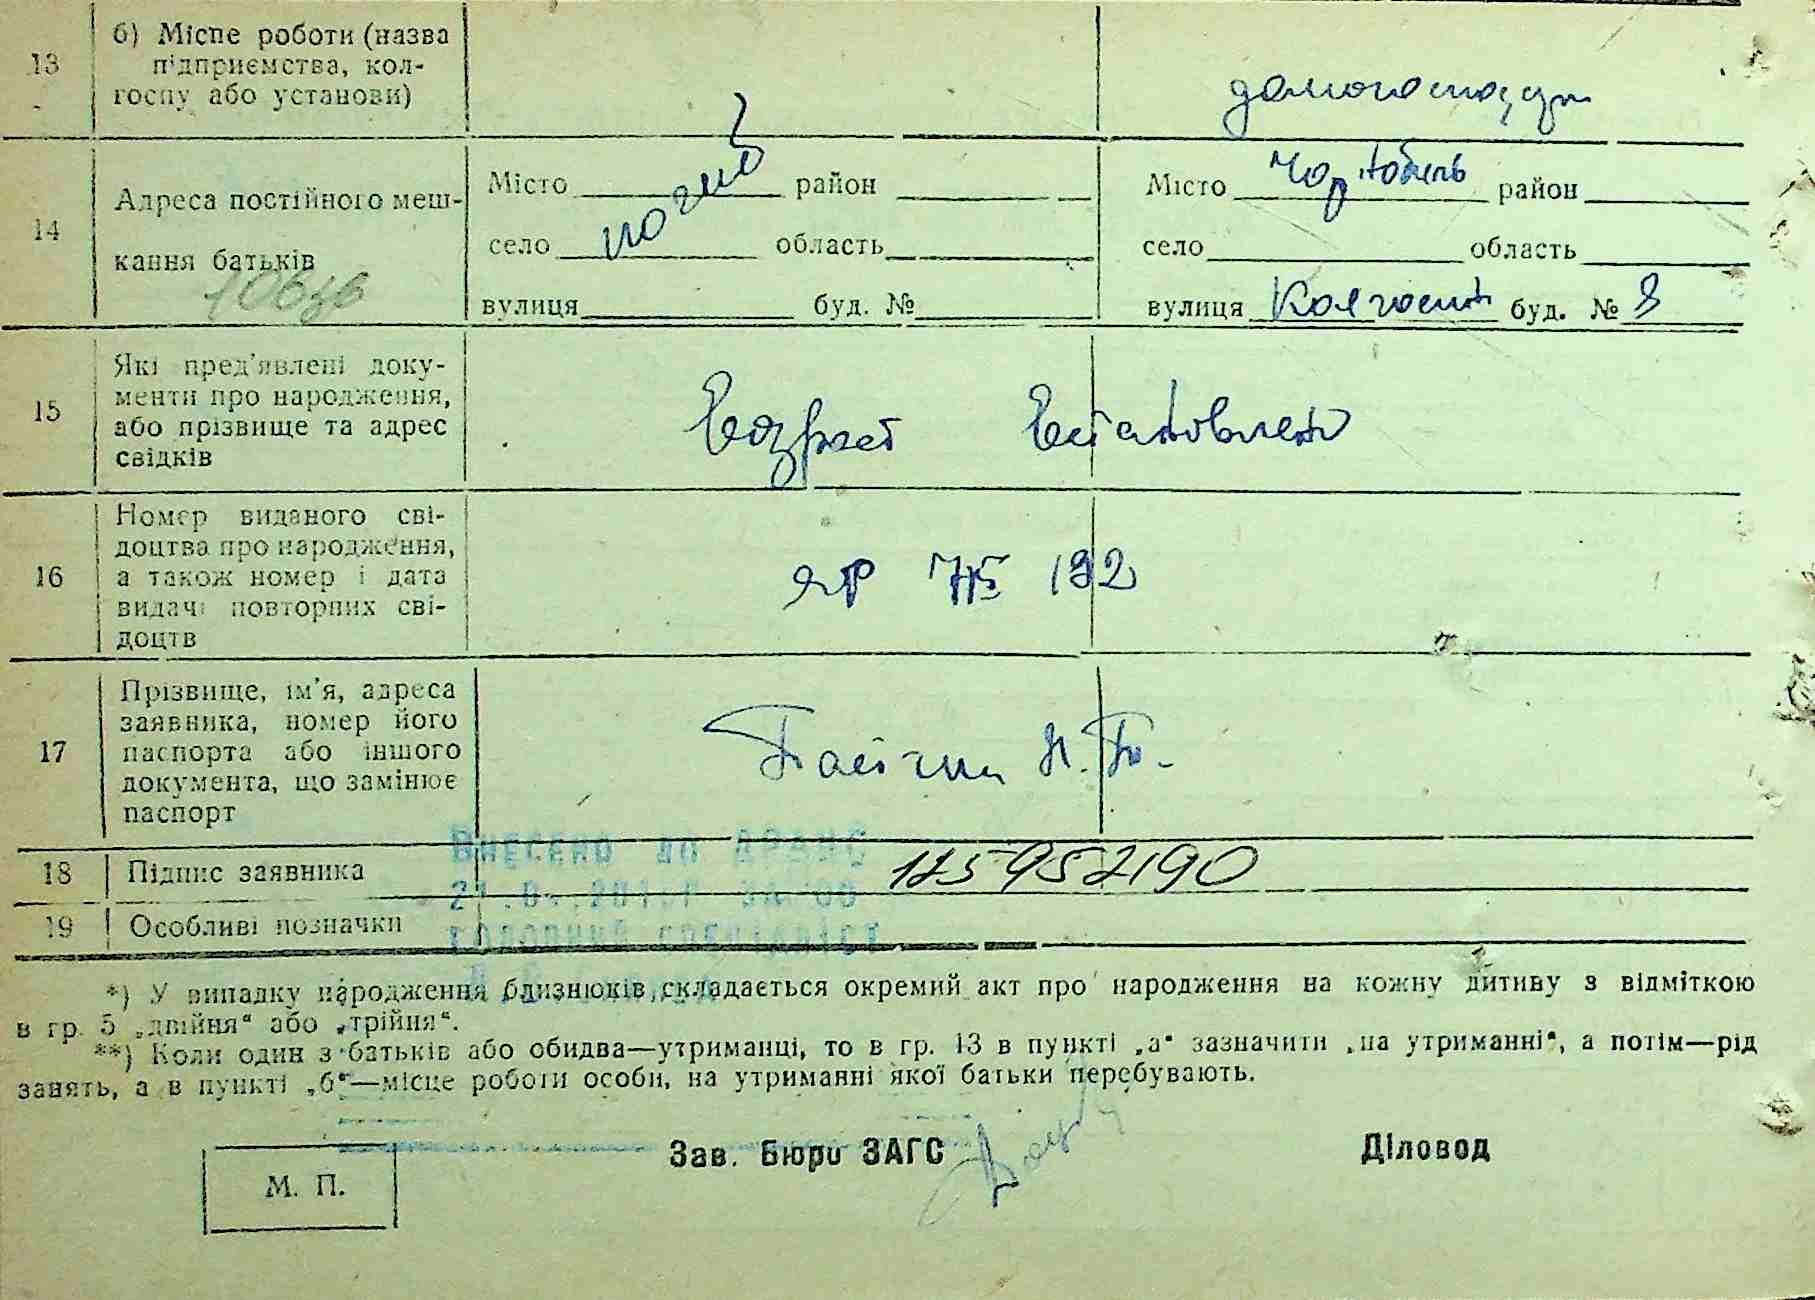 13
б) Місце роботи (назва
підприємства, кол-
госпу або установи)
14
Адреса постійного меш-
кання батьків
Місто погиб район
село область
вулиця буд. №
Місто Чорнобиль район
село область
вулиця буд. №
15
Які пред'явлені доку-
менти про народження,
або прізвище та адрес
свідків
Возраст Установлен
16
Номер виданого сві-
доцтва про народження,
а також номер і дата
видачі повторних сві-
доцтв
ЯР 715 192
17
Прізвище, ім'я, адреса
заявника, номер його
паспорта або іншого
документа, що замінює
паспорт
18
Підпис заявника
19
Особливі позначки
Внесено до ДРАЦС
головний спеціаліст
*) У випадку народження близнюків, складається окремий акт про народження на кожну дитину з відміткою
в гр. 5 „двійня“ або „трійня“.
**) Коли один з батьків або обидва—утриманці, то в гр. 13 в пункті „а“ зазначити „на утриманні“, а потім—рід
занять, а в пункті „б“—місце роботи особи, на утриманні якої батьки перебувають.
Зав. Бюро ЗАГС
Діловод
М. П.